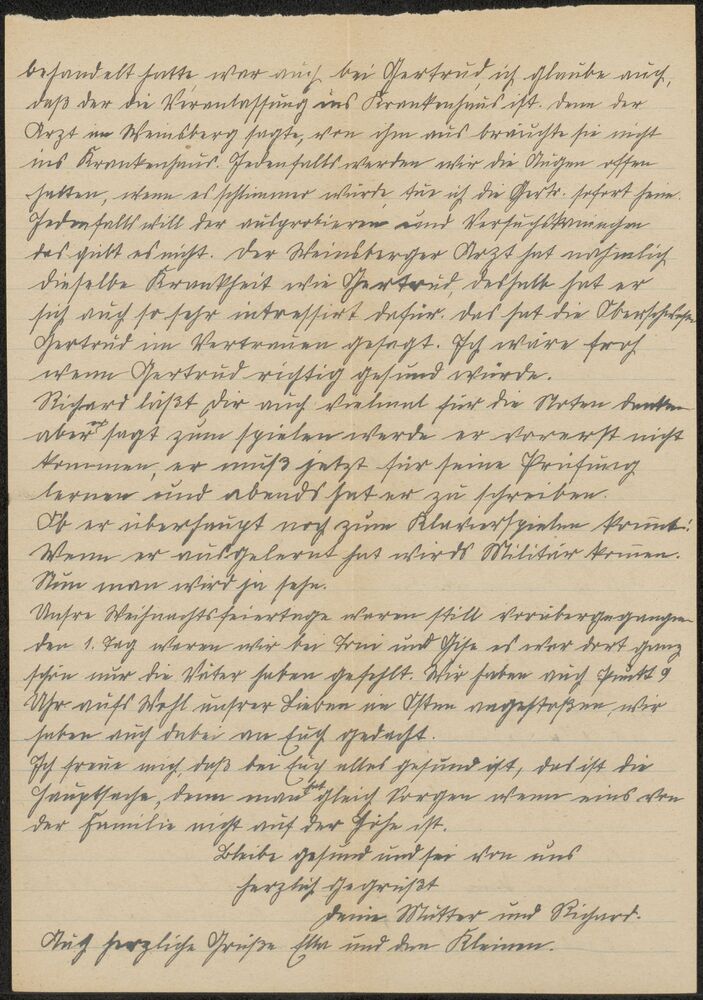 behandelt hatte war auch bei Gertrud ich glaube auch,
daß der die Veranlassung ins Krankenhaus ist. denn der
Arzt in Weinsberg sagte, von ihm aus brauchte sie nicht
ins Krankenhaus. Jedenfalls werden wir die Augen offen
halten, wenn es schlimmer würde, tue ich die Gertr. sofort heim.
Jedenfalls will der ausprobieren und Versuchskaninchen
das gibt es nicht. Der Weinsberger Arzt hat nähmlich
dieselbe Krankheit wie Gertrud, deshalb hat er
sich auch so sehr intressiert dafür. Das hat die Oberschwester
Gertrud im Vertrauen gesagt. Ich wäre froh
wenn Gertrud richtig gesund würde.
Richard läßt Dir auch vielmal für die Noten danken
aber er sagt zum spielen werde er vorerst nicht
kommen, er muß jetzt für seine Prüfung
lernen und abends hat er zu schreiben.
Ob er überhaupt noch zum Klavierspielen kommt!
Wenn er ausgelernt hat wirds Militär kommen.
Nun man wird ja sehn.
Unsre Weihnachtsfeiertage waren still vorübergegangen
den 1. Tag waren wir bei Toni und Gise es war dort ganz
schön nur die Väter haben gefehlt. Wir haben auch Punkt 9
Uhr aufs Wohl unsrer Lieben im Osten angestoßen, wir
haben auch dabei an Euch gedacht.
Ich freue mich, daß bei Euch alles gesund ist, das ist die
Hauptsache, denn man hat gleich Sorgen wenn eins von
der Familie nicht auf der Höhe ist.
Bleibe gesund und sei von uns
herzlich gegrüßt
Deine Mutter und Richard.
Auch herzliche Grüße Ella und den Kleinen.